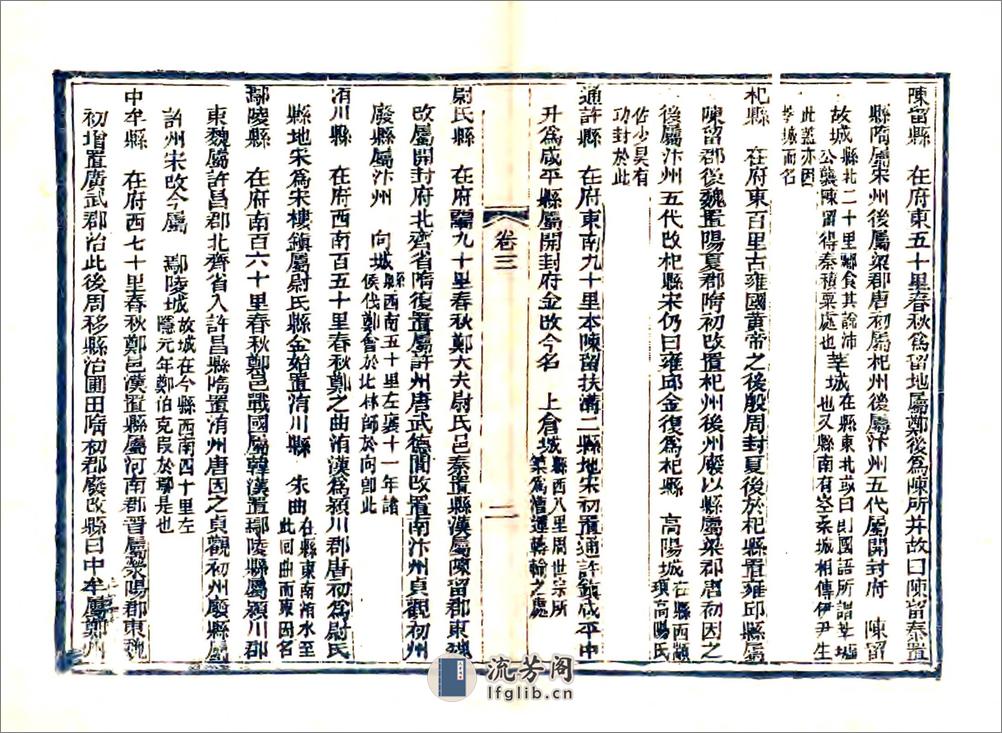 陳留縣　在府東五十里春秋爲留地屬鄭後爲陳所并故曰陳留秦置
縣隋屬宋州後屬梁郡唐初屬杞州後屬汴州五代屬開封府　陳留
故城縣北二十里酈食其說沛公襲陳留得秦積粟處也　莘城在縣東北故曰即國語所謂莘墟也又縣南有空桑城相傳伊尹生
此蓋亦因莘城而名
杞縣　在府東百里古雍國黃帝之後殷周封夏後於杞縣置雍邱縣屬
陳留郡後魏置陽夏郡隋初改置杞州後州廢以縣屬梁郡唐初因之
後屬汴州五代改杞縣宋仍曰雍邱金復爲杞縣　高陽城在縣西顓頊高陽氏
佐少昊有功封於此
通許縣　在府東南九十里本陳留扶溝二縣地宋初置通許鎮咸平中
升爲咸平縣屬開封府金改今名　上倉城縣西八里周世宗所築爲漕運轉輸之處
卷三
二
尉氏縣　在府南九十里春秋鄭大夫尉氏邑秦置縣漢屬陳留郡東魏
改屬開封府北齊省隋復置屬許州唐武德間改置南汴州貞觀初州
廢縣屬汴州　向城縣西南五十里左襄十一年諸侯伐鄭會於北林師於向卽此
洧川縣　在府西南百五十里春秋鄭之曲洧漢爲潁川郡唐初爲尉氏
縣地宋爲宋樓鎮屬尉氏縣金始置洧川縣　朱曲在縣東南洧水至此回曲而東因名
鄢陵縣　在府南百六十里春秋鄭邑戰國屬韓漢置鄢陵縣屬潁川郡
東魏屬許昌郡北齊省入許昌縣隋置洧州唐因之貞觀初州廢縣屬
許州宋改今屬　鄢陵城故城在今縣西南四十里左隱元年鄭伯克段於鄢是也
中牟縣　在府西七十里春秋鄭邑漢置縣屬河南郡晉屬滎陽郡東魏
初增置廣武郡治此後周移縣治圃田隋初郡廢改縣曰中牟屬鄭州
流芳阁
lfglib.cn